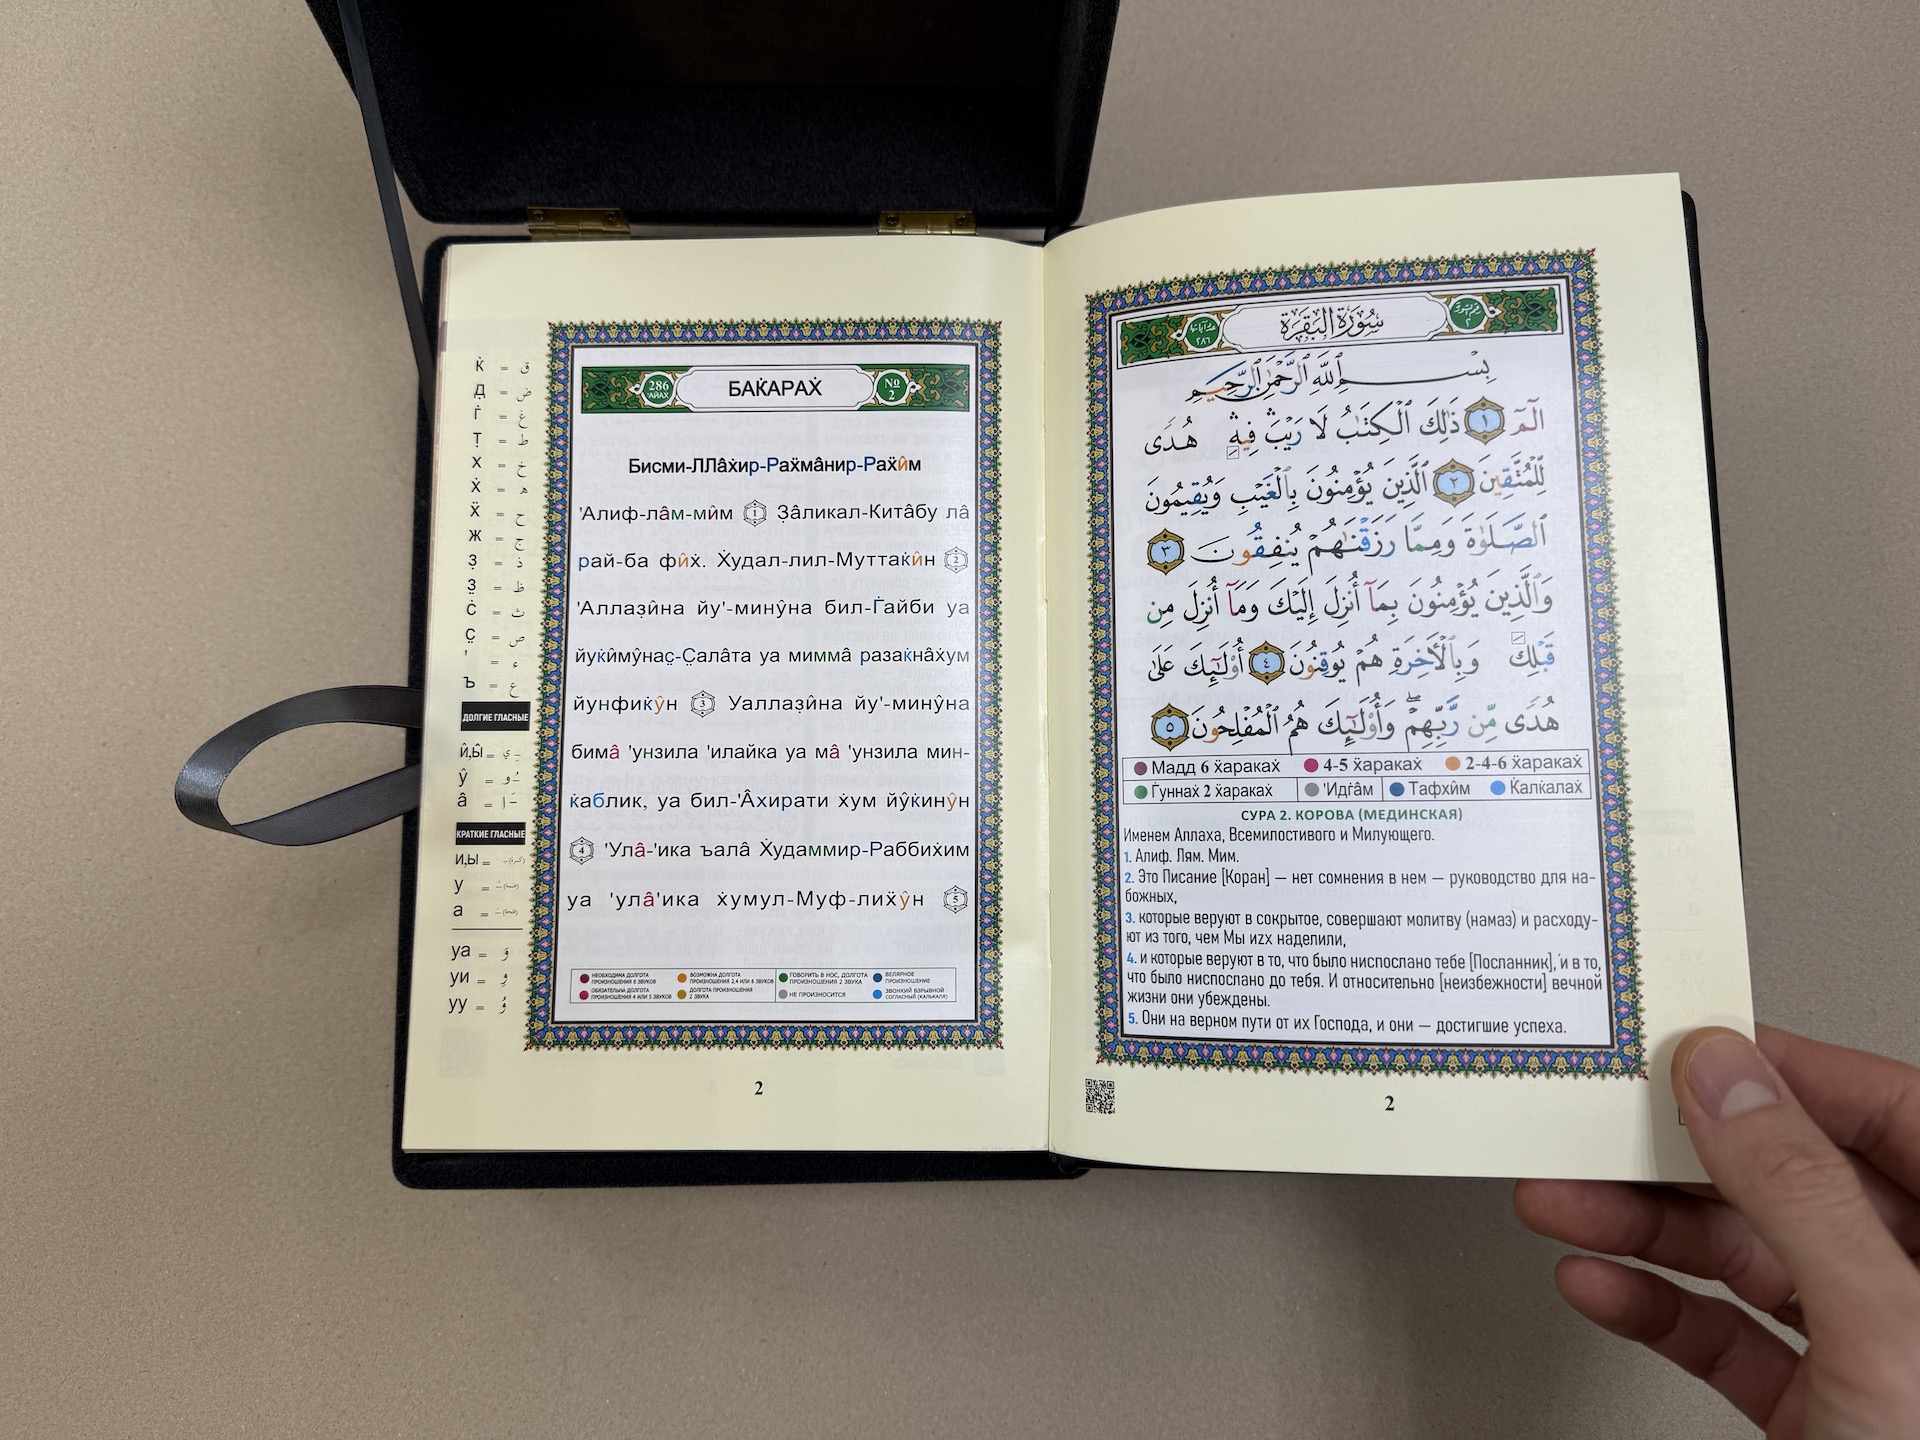 Қ̇ = ق
Д̣ = ض
Г̇ = غ
Т̣ = ط
Х = خ
Х̇ = ه
Х̈ = ح
Ж = ج
З̣ = ذ
З̤ = ظ
С̇ = ث
С̣ = ص
' = ء
Ъ = ع
ДОЛГИЕ ГЛАСНЫЕ
и̂,ы̂ = ـِي
у̂ = ـُو
а̂ = ـَا
КРАТКИЕ ГЛАСНЫЕ
и,ы = (كسرة)
у = (ضمة)
а = (فتحة)
уа = وَ
уи = وِ
уу = وُ
286 'АЙАХ БАК̇АРАХ̇ № 2
Бисми-ЛЛâх̇ир-Рах̈мâнир-Рах̈и̂м
'Алиф-лâм-ми̂м 1 З̣âликал-Китâбу лâ
рай-ба фи̂х̇. Х̇удал-лил-Муттак̇и̂н 2
'Аллаз̣и̂на йу'-мину̂на бил-Г̇айби уа
йук̇и̂му̂нас̣-С̣алâта уа миммâ разак̇нâх̇ум
йунфик̇у̂н 3 Уаллаз̣и̂на йу'-мину̂на
бимâ 'унзила 'илайка уа мâ 'унзила мин-
к̇аблик, уа бил-'Âхирати х̇ум йу̂к̇ину̂н
4 'Улâ-'ика ъалâ Х̇удаммир-Раббих̇им
уа 'улâ'ика х̇умул-Муф-лих̈у̂н 5
НЕОБХОДИМА ДОЛГОТА ПРОИЗНОШЕНИЯ 6 ЗВУКОВ
ВОЗМОЖНА ДОЛГОТА ПРОИЗНОШЕНИЯ 2,4 ИЛИ 6 ЗВУКОВ
ГОВОРИТЬ В НОС, ДОЛГОТА ПРОИЗНОШЕНИЯ 2 ЗВУКА
ВЕЛЯРНОЕ ПРОИЗНОШЕНИЕ
ОБЯЗАТЕЛЬНА ДОЛГОТА ПРОИЗНОШЕНИЯ 4 ИЛИ 5 ЗВУКОВ
ДОЛГОТА ПРОИЗНОШЕНИЯ 2 ЗВУКА
НЕ ПРОИЗНОСИТСЯ
ЗВОНКИЙ ВЗРЫВНОЙ СОГЛАСНЫЙ (КАЛЬКАЛЯ)
2
سُورَةُ البَقَرَةِ ٢٨٦ ٢
بِسْمِ ٱللَّهِ ٱلرَّحْمَٰنِ ٱلرَّحِيمِ
الٓمٓ ١ ذَٰلِكَ ٱلْكِتَٰبُ لَا رَيْبَ ۛ فِيهِ ۛ هُدًى
لِّلْمُتَّقِينَ ٢ ٱلَّذِينَ يُؤْمِنُونَ بِٱلْغَيْبِ وَيُقِيمُونَ
ٱلصَّلَوٰةَ وَمِمَّا رَزَقْنَٰهُمْ يُنفِقُونَ ٣
وَٱلَّذِينَ يُؤْمِنُونَ بِمَآ أُنزِلَ إِلَيْكَ وَمَآ أُنزِلَ مِن
قَبْلِكَ وَبِٱلْأَخِرَةِ هُمْ يُوقِنُونَ ٤ أُو۟لَٰٓئِكَ عَلَىٰ
هُدًى مِّن رَّبِّهِمْ ۖ وَأُو۟لَٰٓئِكَ هُمُ ٱلْمُفْلِحُونَ ٥
Мадд 6 х̈араках̇ 4-5 х̈араках̇ 2-4-6 х̈араках̇
Г̇уннах̇ 2 х̈араках̇ 'Идг̇âм Тафхи̂м К̇алк̇алах̇
СУРА 2. КОРОВА (МЕДИНСКАЯ)
Именем Аллаха, Всемилостивого и Милующего.
1. Алиф. Лям. Мим.
2. Это Писание [Коран] — нет сомнения в нем — руководство для на-
божных,
3. которые веруют в сокрытое, совершают молитву (намаз) и расходу-
ют из того, чем Мы иzх наделили,
4. и которые веруют в то, что было ниспослано тебе [Посланник], и в то,
что было ниспослано до тебя. И относительно [неизбежности] вечной
жизни они убеждены.
5. Они на верном пути от их Господа, и они — достигшие успеха.
2